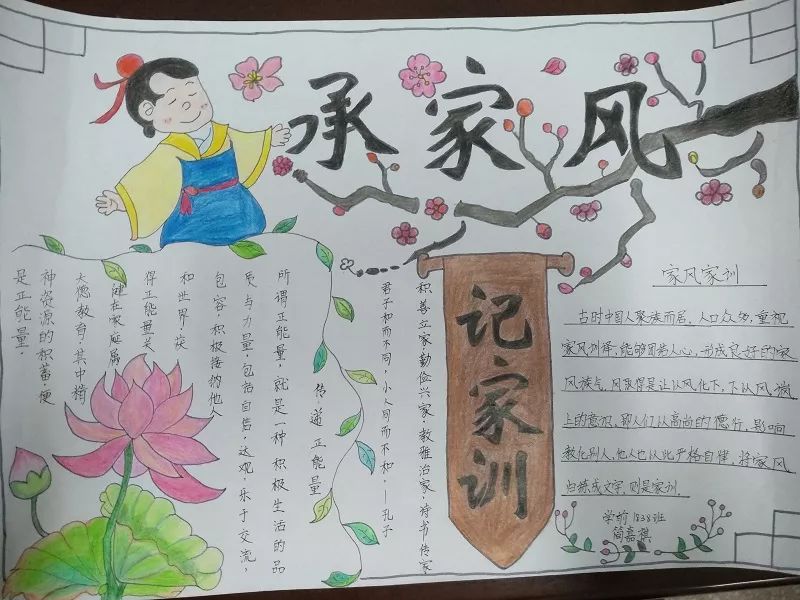 承家风
记家训
传递正能量
所谓正能量，就是一种积极生活的品
质与力量，包括自信，达观，乐于交流，
包容，积极接纳他人
和世界，获
得正能量关
键在家庭属
大德教育，其中精
神资源的积蓄，便
是正能量。
积善立家，勤俭兴家，教雅治家，诗书传家
君子和而不同，小人同而不和。—孔子
家风家训
古时中国人聚族而居，人口众多，重视
家风训释，能够团结人心，形成良好的家
风族气，风取得是让从风化下，下从风
上的意识，即人们从高尚的德行，影响
教化别人，他人也从此严格自律，将家风
炼成文字，则是家训。
学前1838班
简嘉祺